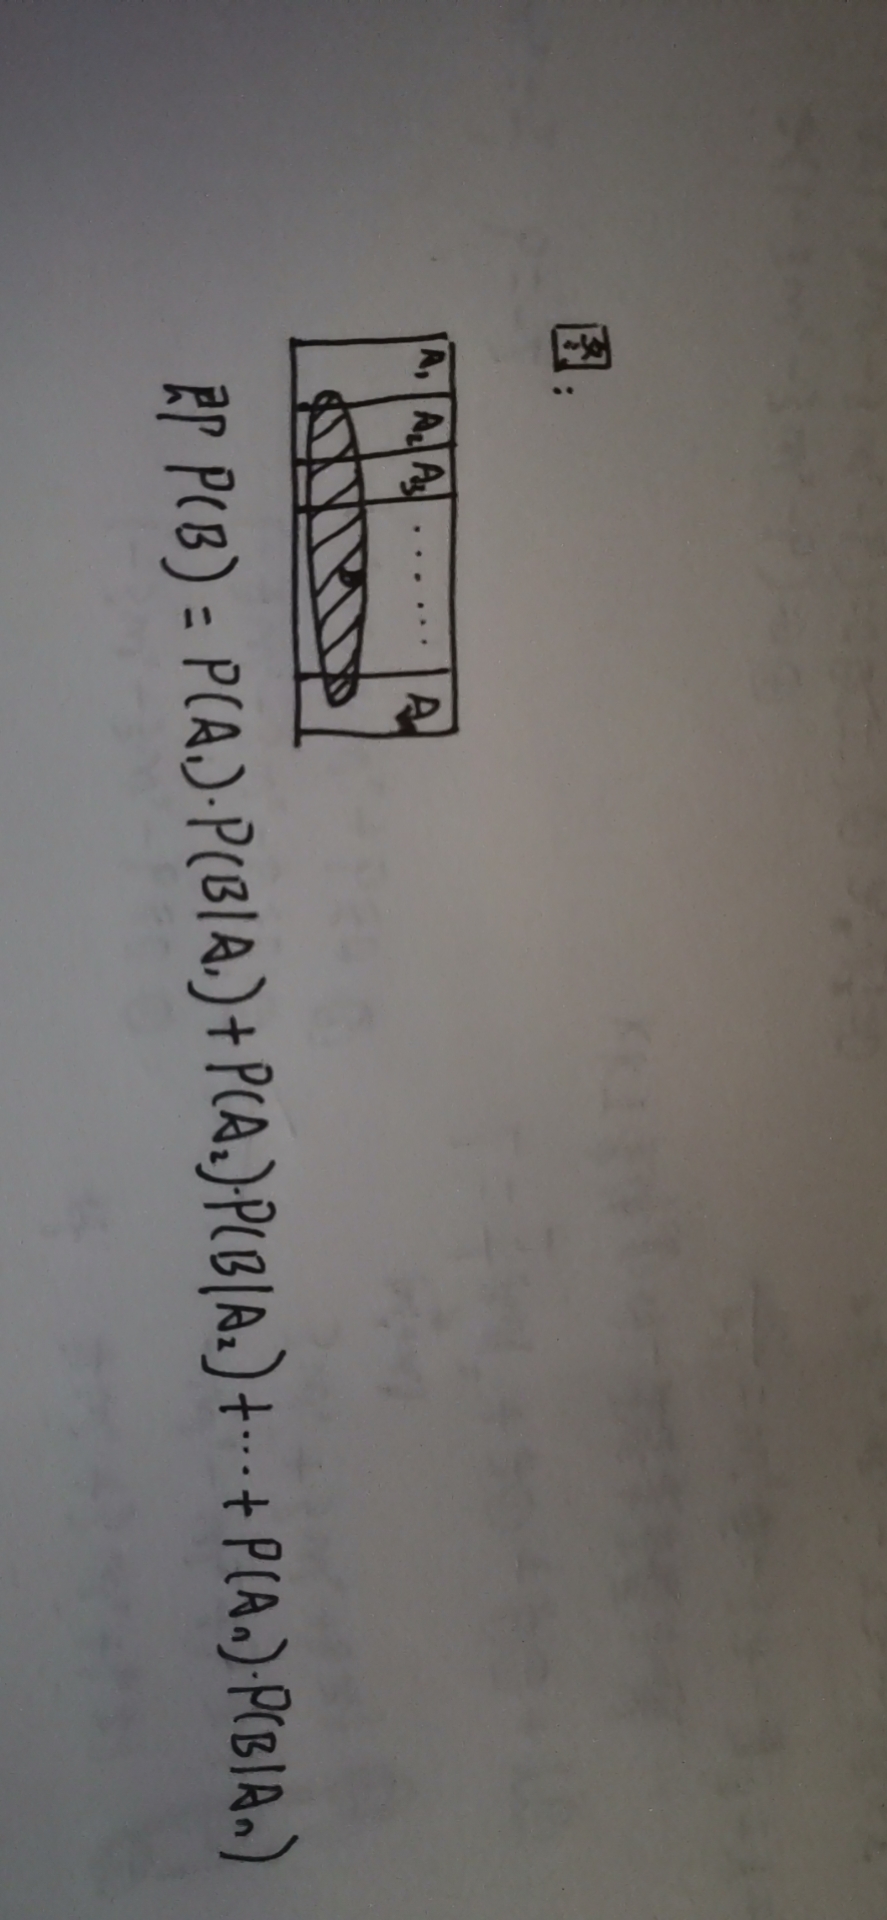 图:
A₁ A₂ A₃ ...... A
即 P(B) = P(A₁)·P(B|A₁)+P(A₂)·P(B|A₂)+···+P(Aₙ)·P(B|Aₙ)